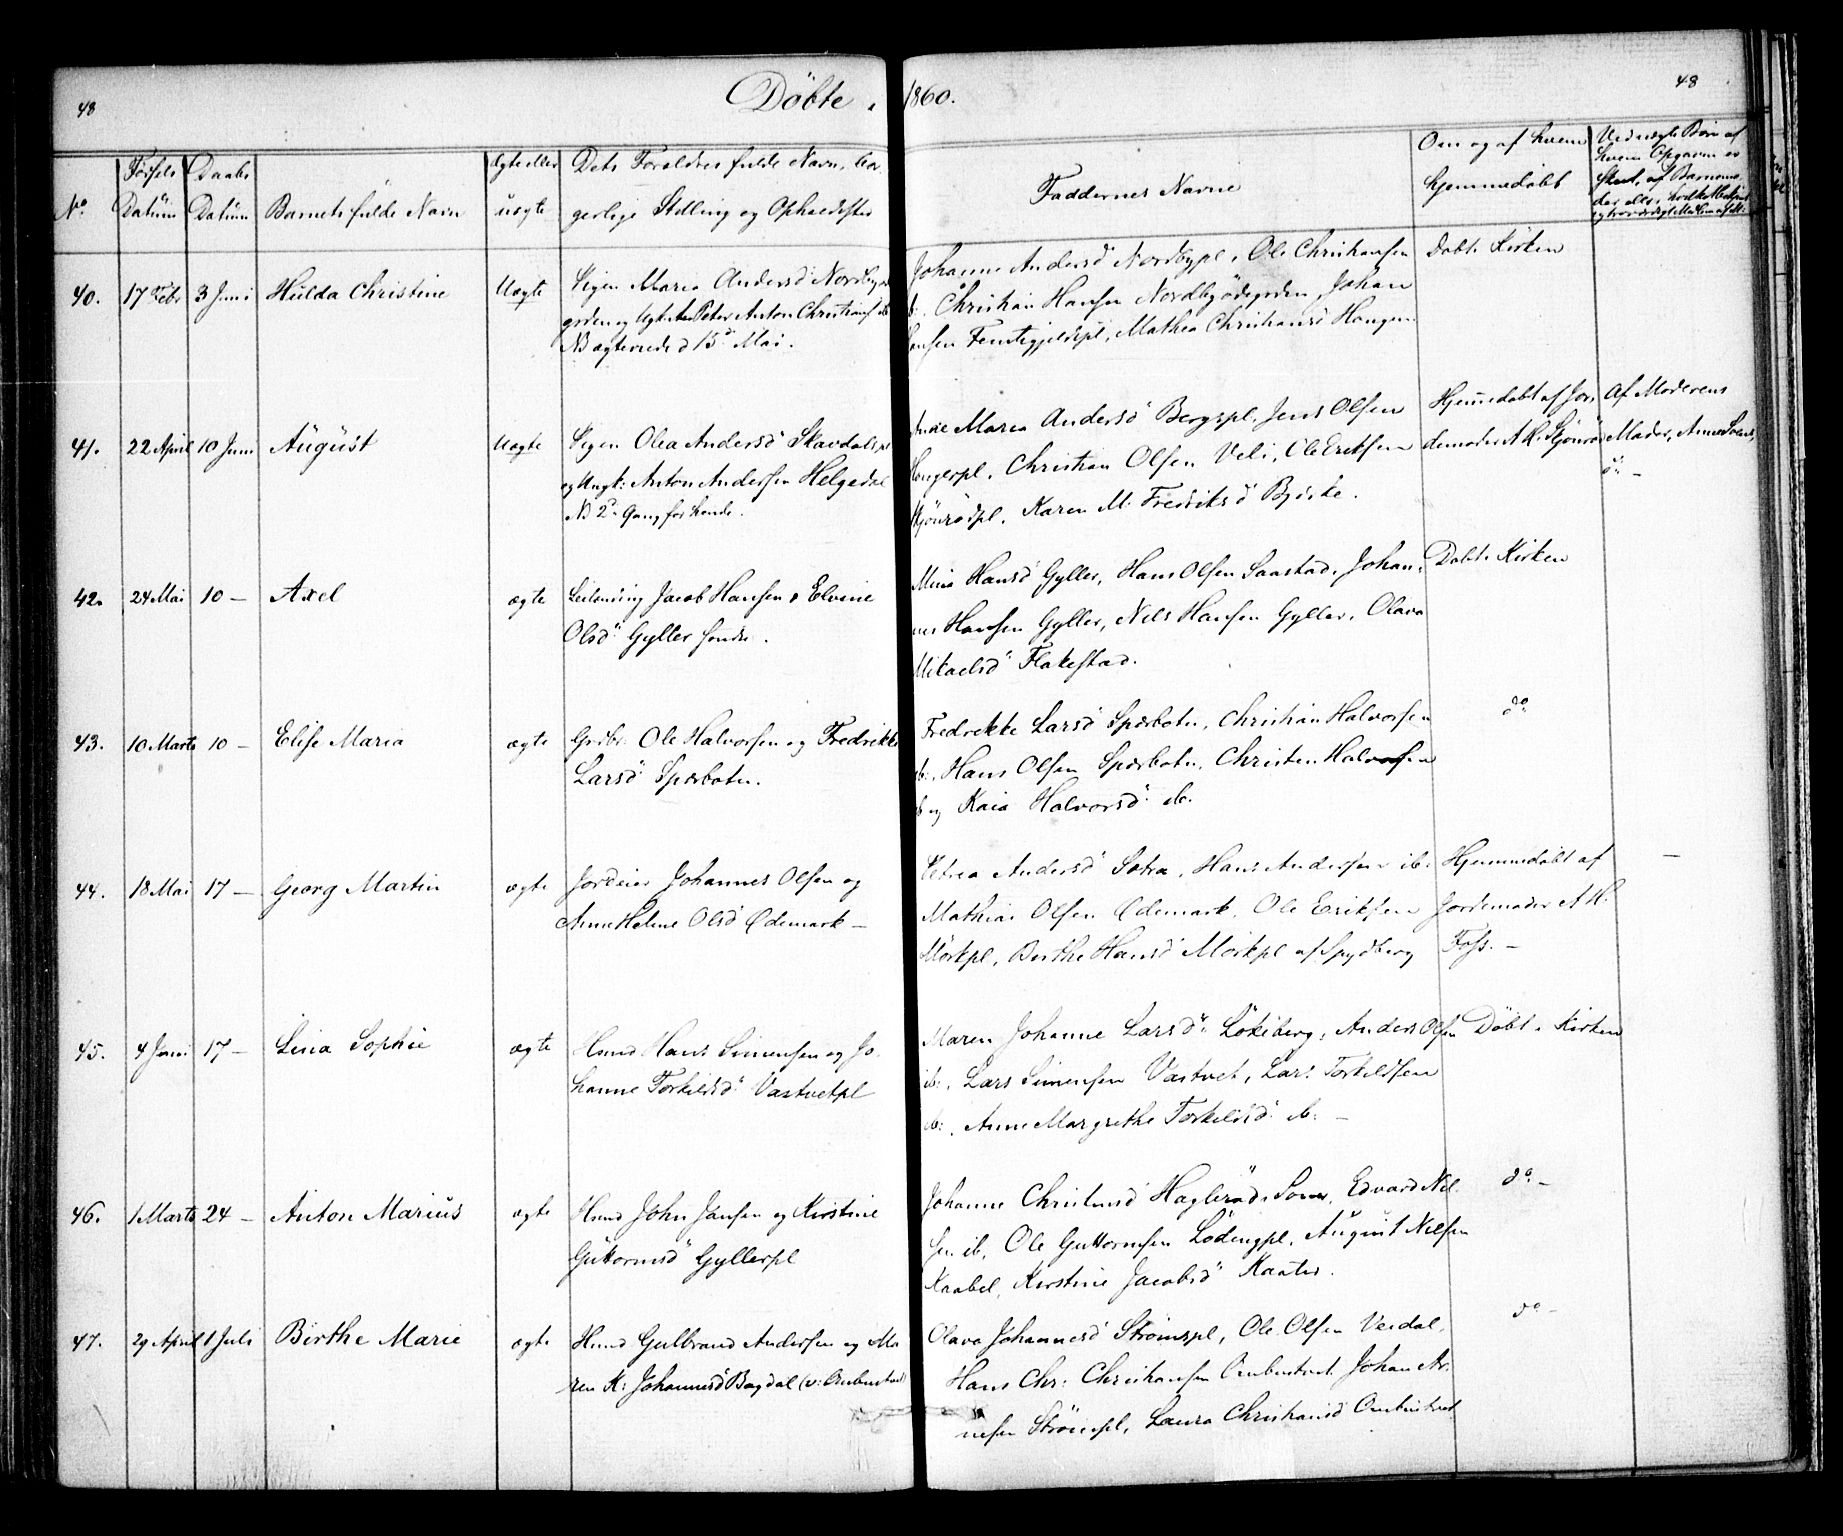 48
Döbte i 1860.
48
No
Fødsels Datum
Daabs Datum
Barnets fulde Navn
ægte eller uægte
Dets Forældres fulde Navn, bor-
gerlige Stilling og Opholdssted
Faddernes Navne
Om og af hvem
hjemmedøbt
Ved uægte Børn af
hvem Opgaven er
skeet, af Barnemo-
40. 17 Febr 3 Juni Hulda Christine Uægte
Pigen Maria Andersd Nordby
og Ungk: Peter Anton Christians
NB ægteviede d 15de Mai.
Johanne Andersd Nordbypl, Ole Christiansen
Christian Hansen Nordbyödegården, Johan
Hansen Fenstigjeldspl, Mathea Christiansd Haugen
Døbt i Kirken
41. 22 April 10 Juni August Uægte
Pigen Olea Andersd Skavdalspl
og Ungk: Anton Andersen Helgedal
NB 2den Gang for hende.
Maria Andersd Bergspl, Jens Olsen
Haugerpl, Christian Olsen Veli, Ole Eriksen
Skjönrödpl, Karen M: Fredriksd Bjerke.
Hjemmedøbt af Jor-
demoder A K. Skjönrö
Af Moderens
Moder, Anne
42. 24 Mai 10 — Axel ægte
Leilending Jacob Hansen & Elvine
Olsd Gyller søndre.
Mina Hansd Gyller, Hans Olsen Saastad, Johan-
nes Hansen Gyller, Nils Hansen Gyller, Olava
Mikaelsd Flakestad.
Døbt i Kirken
43. 10 Marts 10 — Elise Maria ægte
Grdbr. Ole Halvorsen og Fredrikke
Larsd Spærboten.
Fredrekke Larsd Spærboten, Christian Halvorsen
ib:, Hans Olsen Spærboten, Christen Halvorsen
ib og Kaia Halvorsd ib.
do
44. 18 Mai 17 — Georg Martin ægte
Jordeier Johannes Olsen og
Anne Helene Olsd Ödemark —
Petrea Andersd Sotra, Hans Andersen ib:
Mathias Olsen Ödemark, Ole Eriksen
Mörkpl, Berthe Hansd Mörkpl af Spydberg
Hjemmedøbt af
Jordemoder A H.
Foss. —
—
45. 4 Juni 17 — Lina Sophie ægte
Husmd Hans Simensen og Jo-
hanne Torkildsd Vastvetpl
Maren Johanne Larsd Lökeberg, Anders Olsen
ib:, Lars Simensen Vastvet, Lars Torkildsen
ib:, Anne Margrethe Torkildsd ib: —
Döbt i Kirken
46. 1 Marts 24 — Anton Marius ægte
Husmd John Jansen og Kirstine
Guttormsd Gyllerpl
Johanne Christensd Hagleröd i Soner, Edvard Niel-
sen ib, Ole Guttormsen Lödengpl, August Nilsen
Kaabel, Kirstine Jacobsd Kaatur.
do —
47. 29 April 1 Juli Birthe Marie ægte
Husmd Gulbrand Andersen og Ma-
ren K: Johannesd Bagdal
Olava Johannesd Strömspl, Ole Olsen Verdal,
Hans Chr: Christiansen Johan
nesen Strömspl, Laura Christiansd
do —